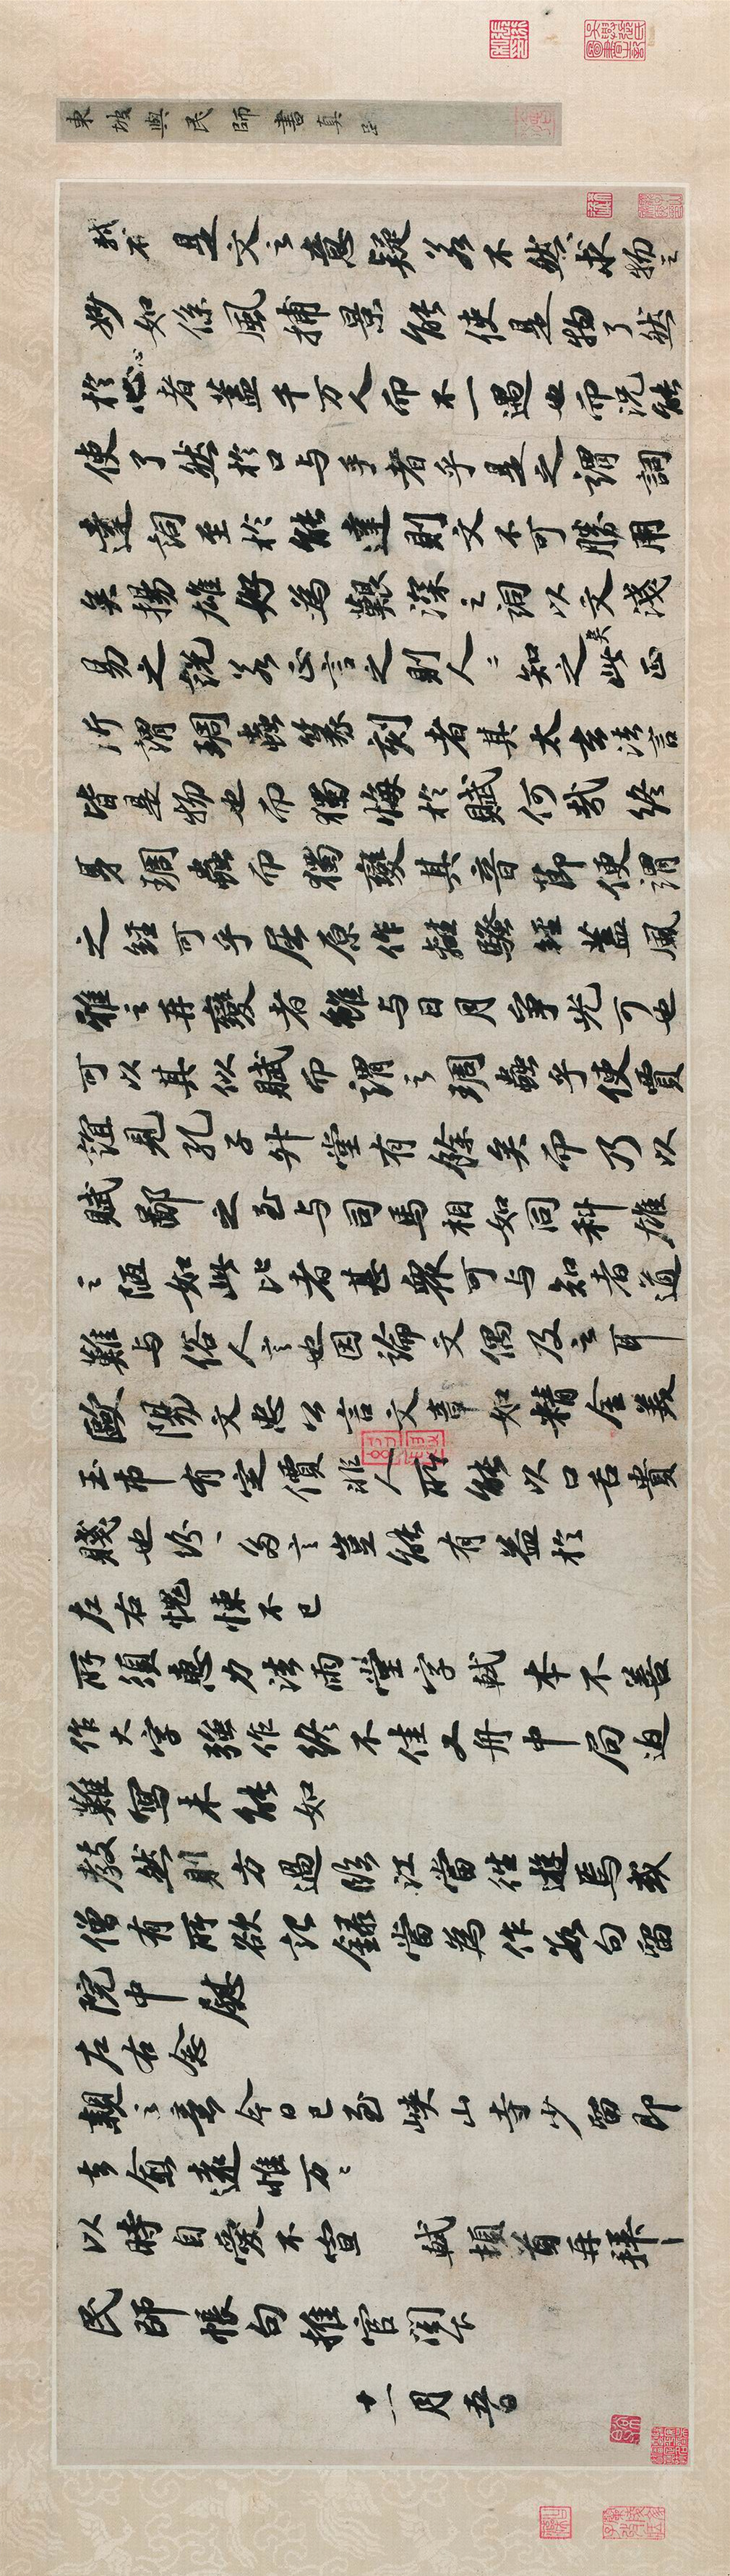 東坡與民師書真
是文之意疑若不然求物之
妙如係風捕景能使是物了然
於心者蓋千万人而不一遇也而況能
使了然於口与手者乎是之謂詞
達詞至於能達則文不可勝用
矣揚雄好為艱深之詞以文淺
易之說若正言之則人〻知之矣此正
所謂琱蟲篆刻者其太玄法言
皆是物也而獨悔於賦何哉終
身琱蟲而獨變其音節便謂
之經可乎屈原作離騷經蓋風
雅之再變者雖与日月爭光可也
可以其似賦而謂之琱蟲乎使賈
誼見孔子升堂有餘矣而乃以
賦鄙之至与司馬相如同科雄
之陋如此比者甚眾可与知者道
難与俗人言也因論文偶及之耳
歐陽文忠公言文章如精金美
玉市有定價非人所能以口舌貴
賤也紛〻多言豈能有益於
左右愧悚不已
所須惠力法雨堂字軾本不善
作大字強作終不佳又舟中局迫
難寫未能如
教然則方過臨江當往遊焉或
僧有所欲記錄當為作數句留
院中慰
左右念
親之意今日已至峽山寺少留即
去愈遠惟万〻
以時自愛不宣 軾頓首再拜
民師帳句推官閣下
十一月五日